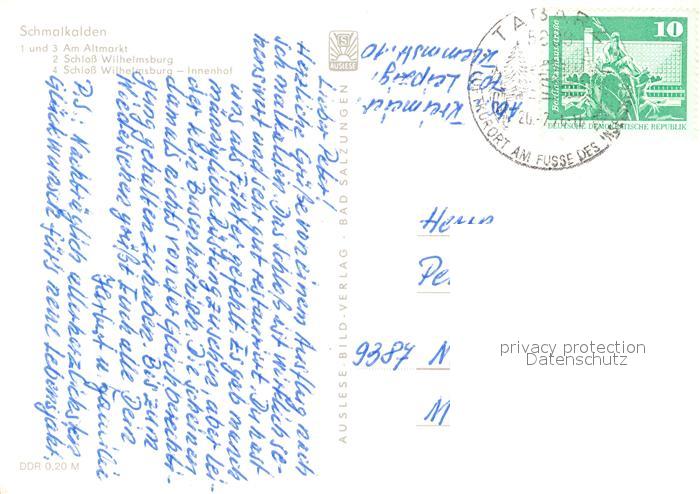 Schmalkalden
1 und 3 Am Altmarkt
2 Schloß Wilhelmsburg
4 Schloß Wilhelmsburg – Innenhof
AUSLESE
Lieber Peter!
Herzliche Grüße von einem Ausflug nach
Schmalkalden. Das Schloß ist wirklich se-
henswert und sehr gut restauriert. Du hast
uns als Führer gefehlt. Es gab manch
männgliche Rüstung zu sehen, aber lei-
der kein Die scheinen
damals nichts von der Gleichberechti-
gung gehalten zu haben. Bis zum
Wiedersehen grüßt Euch alle Dein
Herbert u. Familie
PS: Nachträglich allerherzlichsten
Glückwunsch fürs neue Lebensjahr.
DDR 0,20 M
AUSLESE-BILD-VERLAG · BAD SALZUNGEN
Abs.
701 Leipzig,
Klemmstr. 10
TABARZ
26.7.
KURORT AM FUSSE DES
10
Berlin, Rathausstraße
DEUTSCHE DEMOKRATISCHE REPUBLIK
Herrn
Pe
9387 N
M
privacy protection
Datenschutz